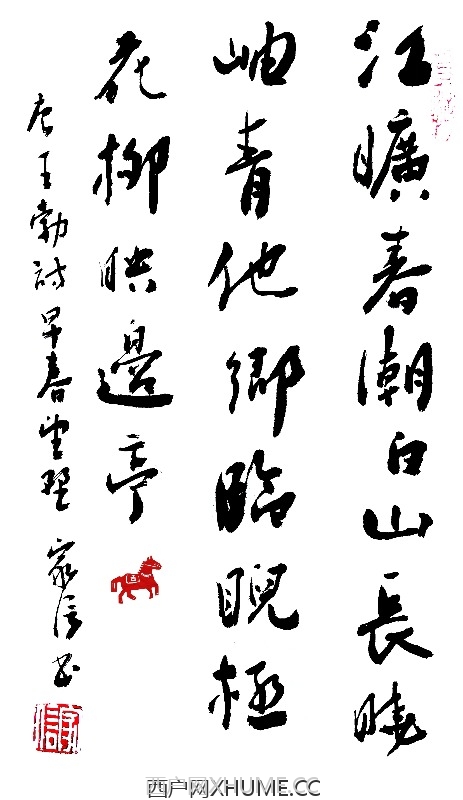 江曠春潮白山長曉
岫青他鄉臨睨極
花柳映邊亭
唐王勃詩早春望野 家信书
西户网XHUME.CC